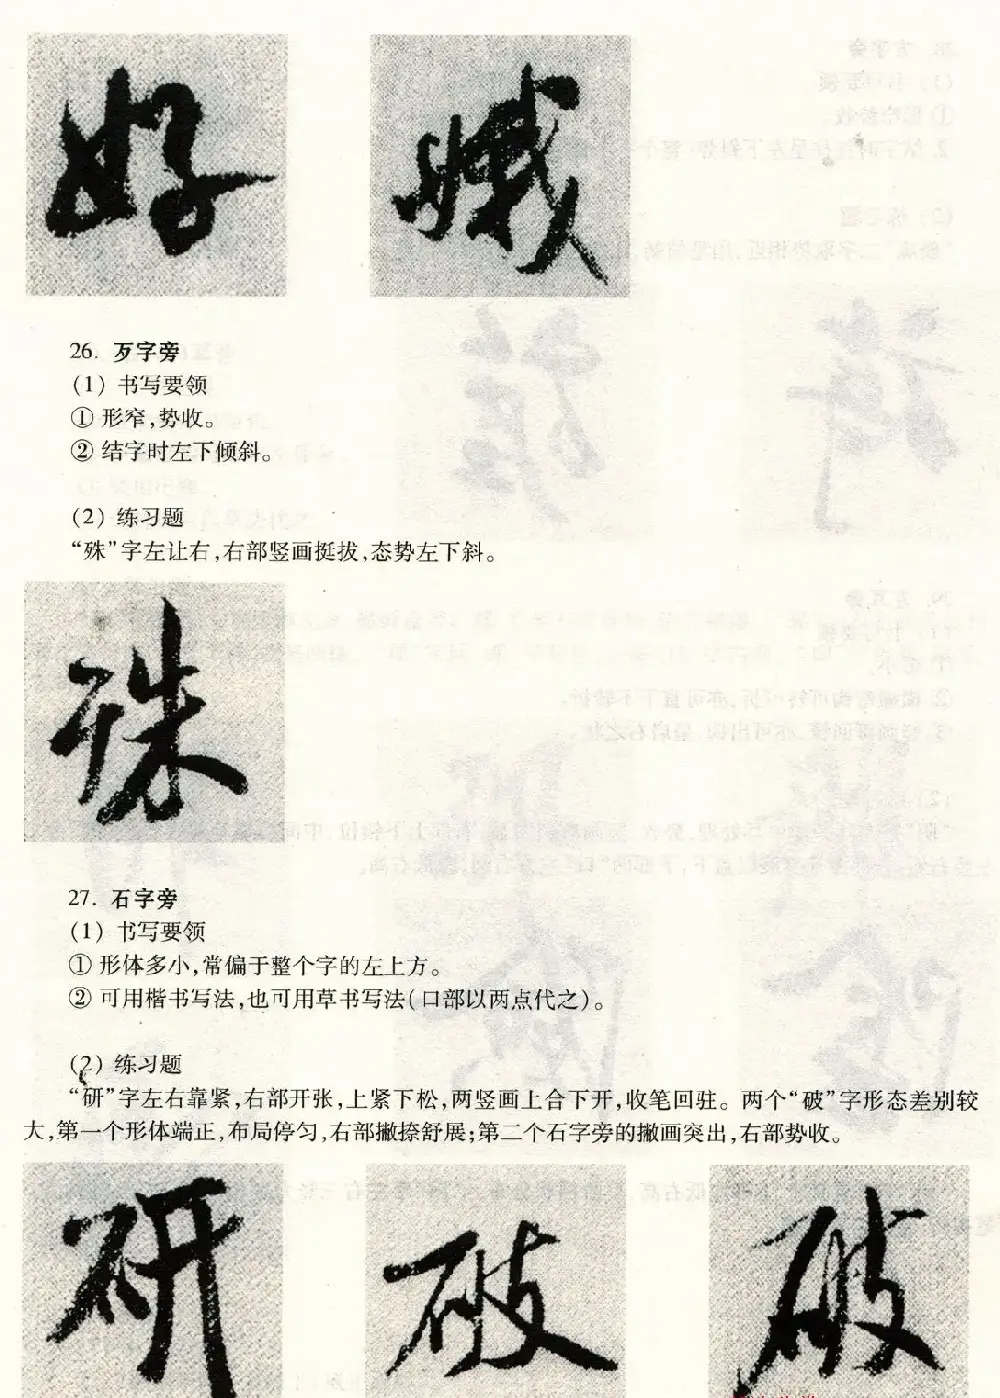 好 娥
26. 歹字旁
(1) 书写要领
① 形窄,势收。
② 结字时左下倾斜。
(2) 练习题
“殊”字左让右,右部竖画挺拔,态势左下斜。
殊
27. 石字旁
(1) 书写要领
① 形体多小,常偏于整个字的左上方。
② 可用楷书写法,也可用草书写法(口部以两点代之)。
(2) 练习题
“研”字左右靠紧,右部开张,上紧下松,两竖画上合下开,收笔回驻。两个“破”字形态差别较
大,第一个形体端正,布局停匀,右部撇捺舒展;第二个石字旁的撇画突出,右部势收。
研 破 破